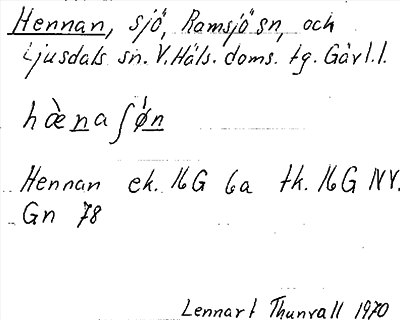 Hennan, sjö, Ramsjö sn, och
Ljusdals sn. V. Häls. doms. tg. Gävl.l.
hæ̀naʃǿn
Hennan ek. 16G 6a tk. 16G NV.
Gn 78
Lennart Thunvall 1970